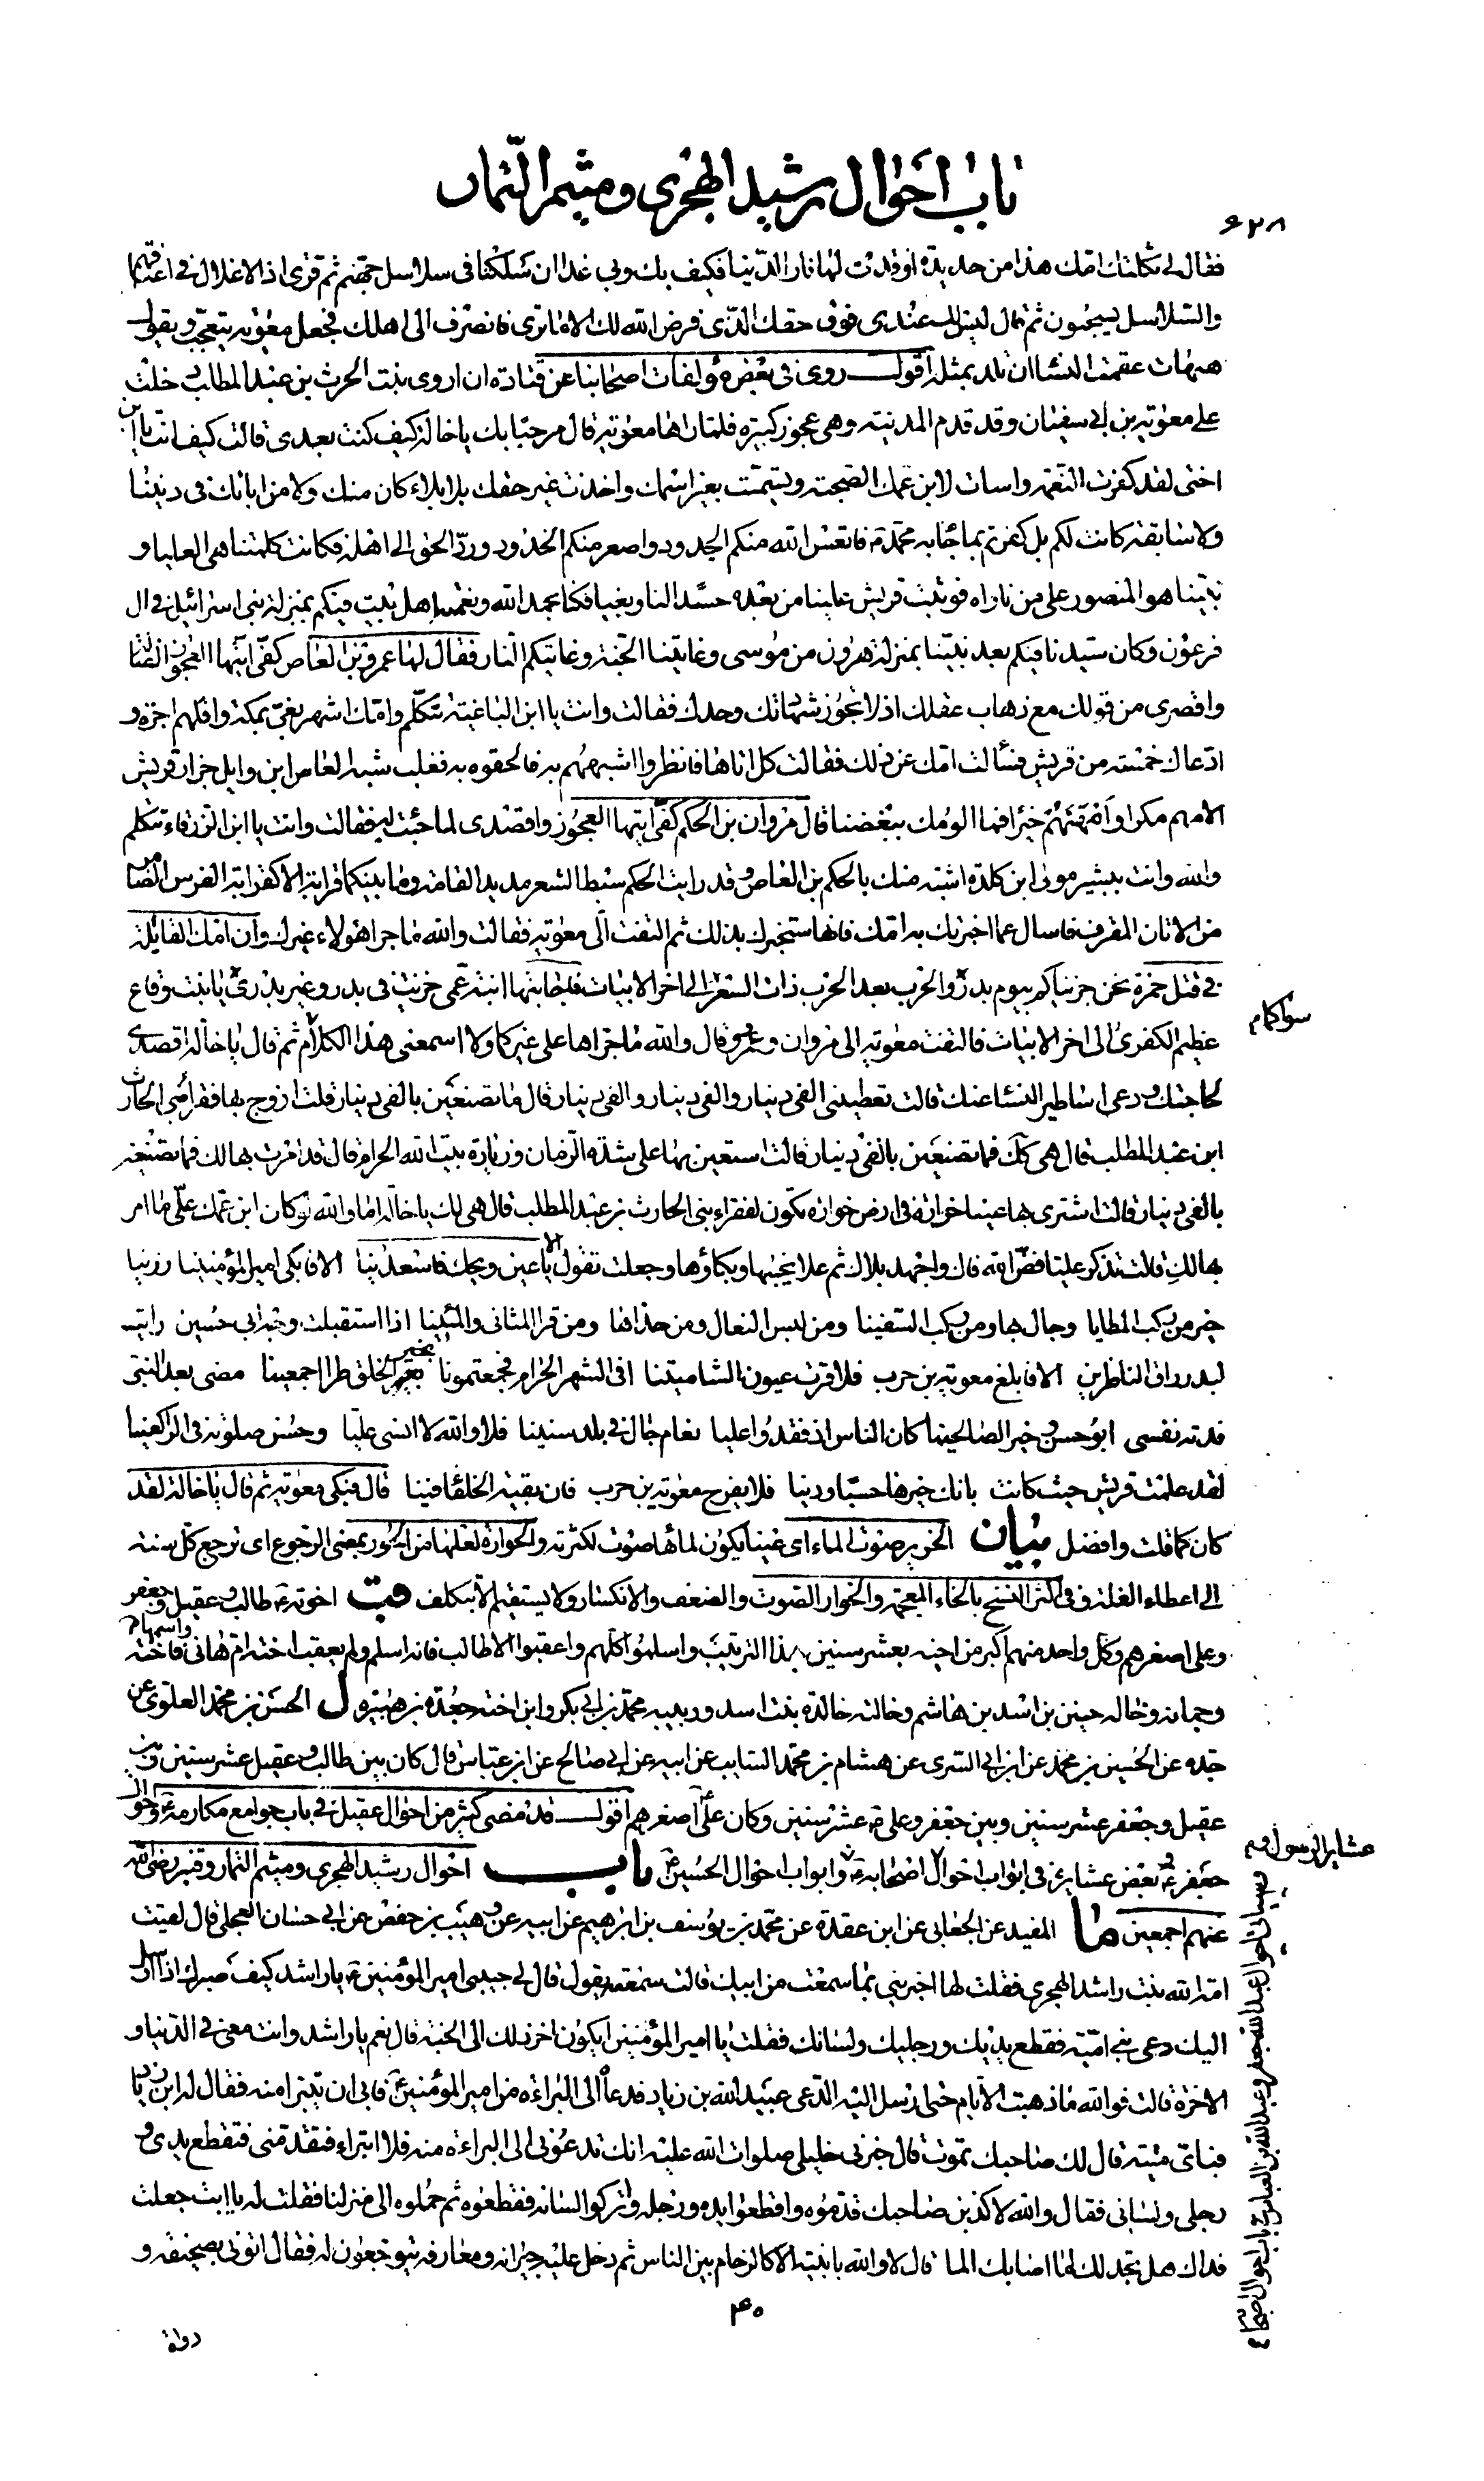 باب احوال رشيد الهجرى و ميثم التمار
۶۲۸
فقال لى ثكلتك امك هذا من حديدة اوقدت لها نار الدنيا فكيف بك وبى غدا ان سلكنا فى سلاسل جهنم ثم قرء اذ الاغلال فى اعناقهم
والسلاسل يسحبون ثم قال ليس لك عندى فوق حقك الذى فرض الله لك الا ما ترى فانصرف الى اهلك فجعل معوية يتعجب ويقول
هيهات عقمت النسا ان تلد بمثله اقول روى فى بعض مؤلفات اصحابنا عن قتادة ان اروى بنت الحرث بن عبد المطلب دخلت
على معوية بن ابى سفيان وقد قدم المدينة وهى عجوز كبيرة فلما راها معوية قال مرحبا بك يا خالة كيف كنت بعدى قالت كيف انت يا ابن
اختى لقد كفرت النعمة واسات لابن عمك الصحبة وتسميت بغير اسمك واخذت غير حقك بلا بلاء كان منك ولا من ابائك فى ديننا
ولا سابقة كانت لكم بل كفرتم بما جاء به محمد ص فاتعس الله منكم الجدود واصعر منكم الخدود ورد الحق الى اهله فكانت كلمتنا هى العليا و
نبينا هو المنصور على من ناواه فوثبت قريش علينا من بعده حسدا لنا وبغيا فكنا بحمد الله ونعمته اهل بيت فيكم بمنزلة بنى اسرائيل فى ال
فرعون وكان سيدنا فيكم بعد نبينا بمنزلة هرون من موسى وغايتنا الجنة وغايتكم النار فقال لها عمرو بن العاص كفى ايتها العجوز الضالة
واقصرى من قولك مع ذهاب عقلك اذ لا تجوز شهادتك وحدك فقالت وانت يا ابن الباغية تتكلم وامك اشهر بغى بمكة واقلهم اجرة و
ادعاك خمسة من قريش فسألت امك عن ذلك فقالت كل اتاها فانظروا اشبههم به فالحقوه به فغلب شبه العاص ابن وايل جزار قريش
الامهم مكرا وامهنهم خيرا فما الومك ببغضنا قال مروان بن الحكم كفى ايتها العجوز واقصدى لما جئت له فقالت وانت يا ابن الزرقاء تتكلم
والله وانت ببشير مولى ابن كلدة اشبه منك بالحكم بن العاص وقد رايت الحكم سبط الشعر مديد القامة وما بينكما قرابة الا كقرابة الفرس الضامر
من الاتان المقرف فاسال عما اخبرتك به امك فانها ستخبرك بذلك ثم التفت الى معوية فقالت والله ما جرا هؤلاء غيرك وان امك القايلة
فى قتل حمزة نحن جزيناكم بيوم بدر والحرب بعد الحرب ذات السعر الى اخر الابيات فاجابتها ابنة عمى خزيت فى بدر وغير بدر يا بنت وقاع
عظيم الكفر الى اخر الابيات فالتفت معوية الى مروان وعمرو وقال والله ما جراها على غيركما ولا اسمعنى هذا الكلام ثم قال يا خالة اقصدى
لحاجتك ودعى اساطير النسا عنك قالت تعطينى الفى دينار والفى دينار والفى دينار قال ما تصنعين بالفى دينار قلت ازوج بها فقراء بنى الحارث
ابن عبد المطلب قال هى كك فما تصنعين بالفى دينار قالت استعين بها على شدة الزمان وزيارة بيت الله الحرام قال قد امرت بها لك فما تصنعين
بالفى دينار قالت اشترى بها عينا خرارة فى ارض خوارة تكون لفقراء بنى الحارث بن عبد المطلب قال هى لك يا خالة اما والله لو كان ابن عمك على ما امر
بها لك قالت تذكر عليا فض الله فاك واجهد بلاك ثم علا نحيبها وبكاؤها وجعلت تقول الا يا عين ويحك فاسعدينا الا فابكى امير المؤمنينا رزينا
خير من ركب المطايا وجال بها ومن ركب السفينا ومن لبس النعال ومن حذاها ومن قرا المثانى والمئينا اذا استقبلت وجه ابى حسين رايت
البدر راق الناظرين الا فابلغ معوية بن حرب فلا قرت عيون الشامتينا افى الشهر الحرام فجعتمونا بخير الخلق طرا اجمعينا مضى بعد النبى
فدته نفسى ابو حسن وخير الصالحينا كان الناس اذ فقدوا عليا نعام جال فى بلد سنينا فلا والله لا انسى عليا وحسن صلوته فى الراكعينا
لقد علمت قريش حيث كانت بانك خيرها حسبا ودينا فلا يفرح معوية بن حرب فان بقية الخلفا فينا قال فبكى معوية ثم قال يا خالة لقد
كان كما قلت وافضل بيان الخرير صوت الماء اى عينا يكون لمائها صوت لكثرته والحوارة لعلها من الحور بمعنى الرجوع اى ترجع كل سنة
الى اعطاء الغلة وفى اكثر النسخ بالخاء المعجمة والخوار الصوت والضعف والانكسار ولا يستقيم الا بتكلف قب اخوته ع طالب وعقيل وجعفر
وعلى اصغرهم وكل واحد منهم اكبر من اخيه بعشر سنين بهذا الترتيب واسلموا كلهم واعقبوا الا طالب فانه اسلم ولم يعقب اخته ام هانى واسمها فاختة
وجمانة وخاله حنين بن اسد بن هاشم وخالته خالدة بنت اسد وربيبه محمد بن ابى بكر وابن اخته جعدة بن هبيرة ل الحسن بن محمد العلوى عن
جده عن الحسين بن محمد عن ابن ابى السرى عن هشام بن محمد السايب عن ابيه عن ابى صالح عن ابن عباس قال كان بين طالب وعقيل عشر سنين وبين
عقيل وجعفر عشر سنين وبين جعفر وعلى ع عشر سنين وكان على ع اصغرهم اقول قد مضى كثير من احوال عقيل فى باب جوامع مكارمه ع واحوال
جعفر ع وبعض عشايره فى ابواب احوال اصحابه ع وابواب احوال الحسين ع باب احوال رشيد الهجرى وميثم التمار وقنبر رضى الله
عنهم اجمعين ما المفيد عن الجعابى عن ابن عقدة عن محمد بن يوسف بن ابراهيم عن ابيه عن وهيب بن حفص عن ابى حسان العجلى قال لقيت
امة الله بنت راشد الهجرى فقلت لها اخبرينى بما سمعت من ابيك قالت سمعته يقول قال لى حبيبى امير المؤمنين ع يا راشد كيف صبرك اذا ارسل
اليك دعى بنى امية فقطع يديك ورجليك ولسانك فقلت يا امير المؤمنين ايكون اخر ذلك الى الجنة قال نعم يا راشد وانت معى فى الدنيا و
الاخرة قالت فوالله ما ذهبت الايام حتى ارسل اليه الدعى عبيد الله بن زياد فدعاه الى البراءة من امير المؤمنين ع فابى ان يتبرا منه فقال له ابن زياد
فباى ميتة قال لك صاحبك تموت قال خبرنى خليلى صلوات الله عليه انك تدعونى الى البراءة منه فلا ابتراء فتقدمنى فتقطع يدى و
رجلى ولسانى فقال والله لاكذبن صاحبك قدموه واقطعوا يده ورجله واتركوا لسانه فقطعوه ثم حملوه الى منزلنا فقلت له يا ابت جعلت
فداك هل تجد لك لما اصابك الما قال لا والله يا بنية الا كالزحام بين الناس ثم دخل عليه جيرانه ومعارفه يتوجعون له فقال ائتونى بصحيفة و
۴۰
دواة
عشاير الرسول ص
وسياتى احوال عبد الله بن جعفر وعبد الله بن العباس فى باب احوال اصحابه ع